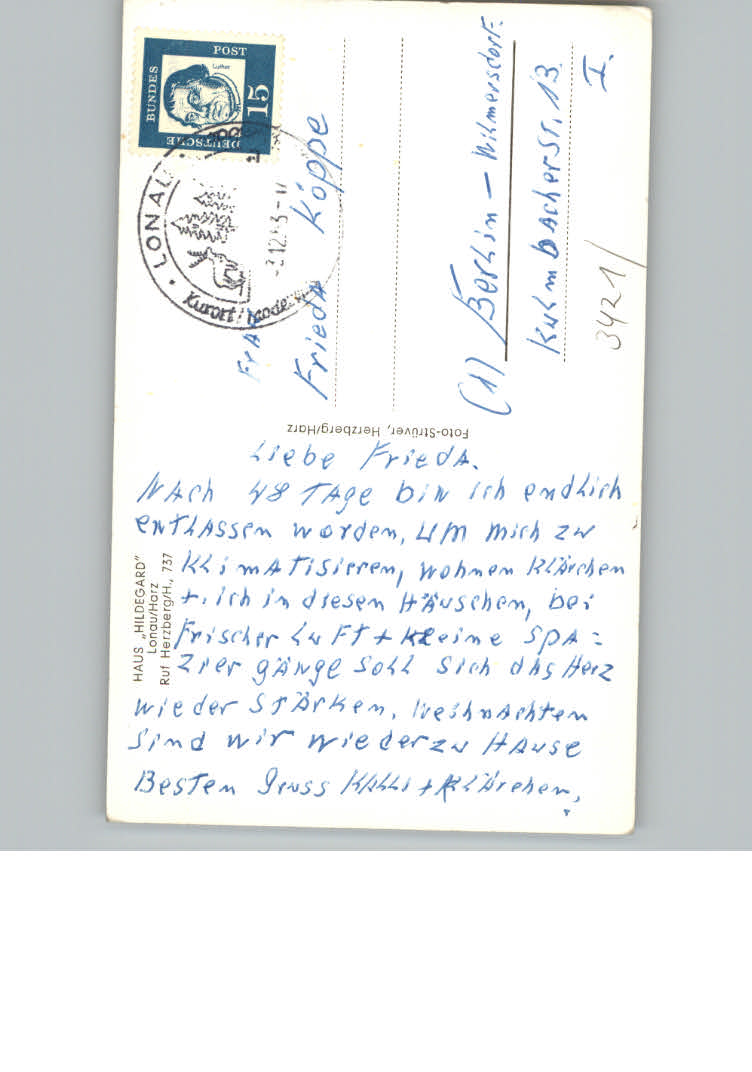 Liebe Frieda.
Nach 48 Tage bin ich endlich
entlassen worden, um mich zu
klimatisieren, wohnen Klärchen
+. ich in diesen Häuschen, bei
frischer Luft + kleine Spa=
ziergänge soll sich das Herz
wieder stärken. Weihnachten
sind wir wieder zu Hause
Besten Gruss Kalli + Klärchen,
HAUS „HILDEGARD"
Lonau/Harz
Ruf Herzberg/H., 737
Foto-Strüver, Herzberg/Harz
DEUTSCHE
BUNDES
POST
Luther
15
LONAU
Kurort
Frau
Frieda Köppe
(1) Berlin – Wilmersdorf.
Kulmbacher St. 13.
I.
3421/